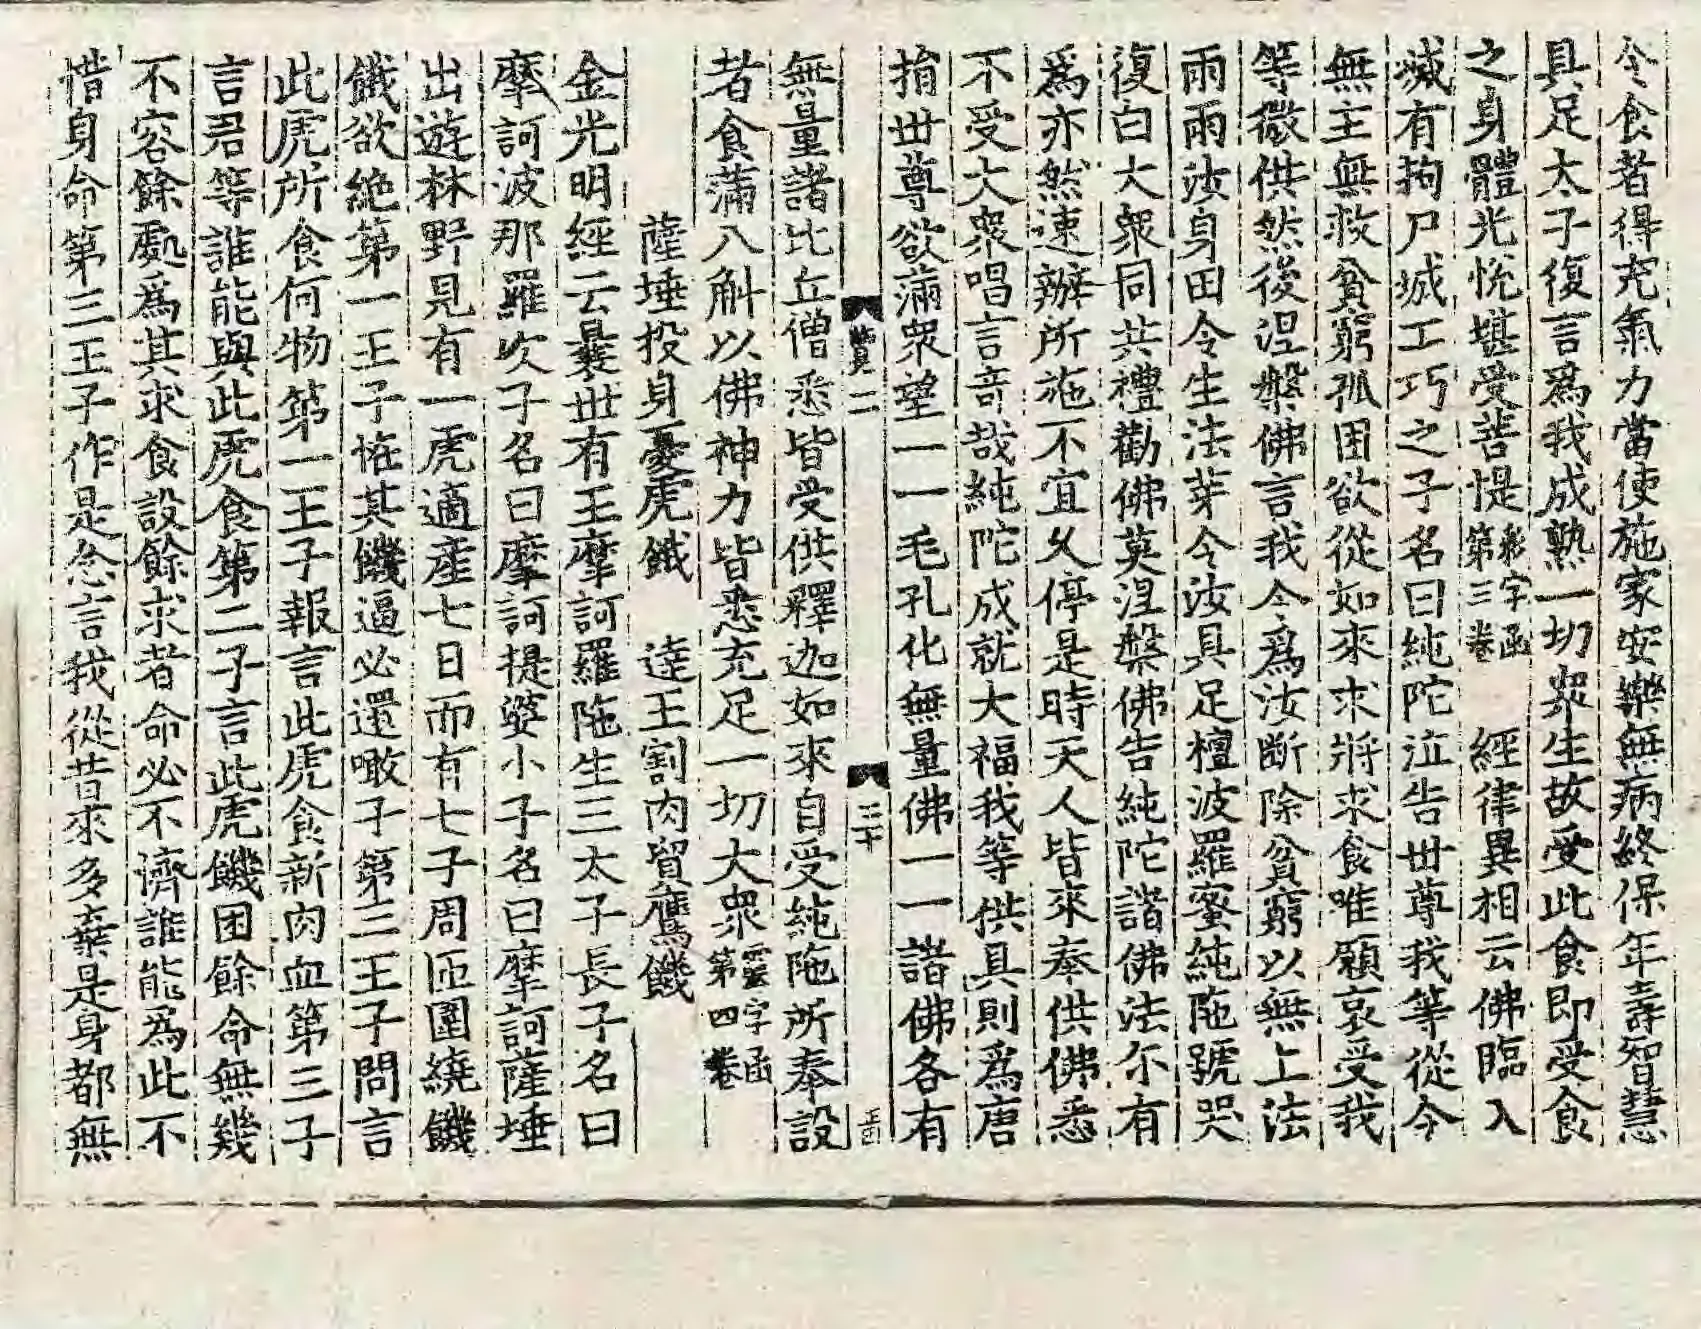 令食者得充氣力當使施家安樂無病終保年壽智慧
具足太子復言爲我成熟一切衆生故受此食即受食
之身體光悅堪受菩提第三卷彩字函 經律異相云佛臨入
滅有拘尸城工巧之子名曰純陀泣告世尊我等從今
無主無救貧窮孤困欲從如來求將求食唯願哀受我
等微供然後涅槃佛言我今爲汝断除貧窮以無上法
雨雨汝身田令生法芽令汝具足檀波羅蜜純陁號哭
復白大衆同共禮勸佛莫涅槃佛告純陀諸佛法尓有
爲亦然速辦所施不宜久停是時天人皆來奉供佛悉
不受大衆唱言竒哉純陀成就大福我等供具則爲唐
捐世尊欲滿衆望一一毛孔化無量佛一一諸佛各有
賛二 三十
無量諸比丘僧悉皆受供釋迦如來自受純陁所奉設
者食滿八斛以佛神力皆悉充足一切大衆第四卷靈字函
薩埵投身憂虎餓 達王割肉貿鷹饑
金光明經云曩世有王摩訶羅陁生三太子長子名曰
摩訶波那羅次子名曰摩訶提婆小子名曰摩訶薩埵
出遊林野見有一虎適產七日而有七子周匝圍繞饑
餓欲絶第一王子恠其饑逼必還噉子第三王子問言
此虎所食何物第一王子報言此虎食新肉血第三子
言君等誰能與此虎食第二子言此虎饑困餘命無幾
不容餘處爲其求食設餘求者命必不濟誰能為此不
惜身命第三王子作是念言我從昔來多棄是身都無